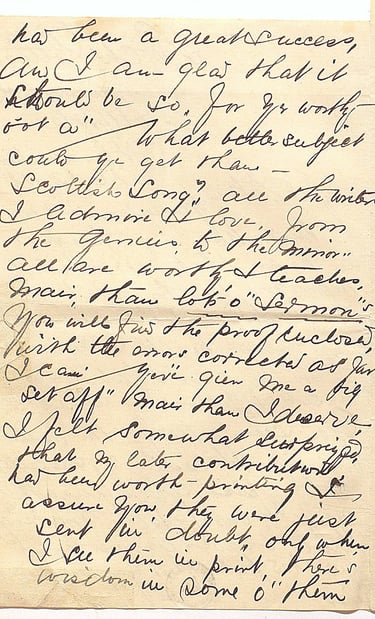 had been a great success,
and I am glad that it
should be so, for ye worthy
o't a" What better subject
could ye get than -
Scottish Song? all the writers
I admire & love, from
the genius, to the "minor"
all are worthy & teaches,
mair, than lots o "Sermon"s
You will find the proof enclosed,
with the errors corrected as far
I can: Ye've gien me a big
set aff" mair than I deserve,
I felt somewhat surprized
that my later contributions
had been worth-printing I
assure you, they were just
sent in doubt, only when
I see them in print, there's
wisdom in some o' them